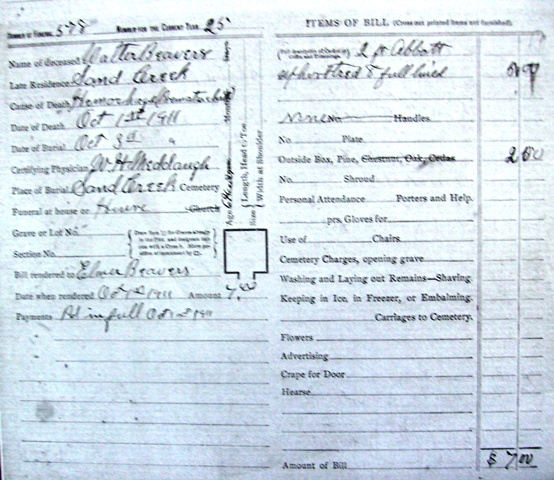 NUMBER OF FUNERAL 578 NUMBER FOR THE CURRENT YEAR 25
Name of deceased Walter Beavers
Late Residence Sand Creek
Cause of Death
Date of Death Oct 1st 1911
Date of Burial Oct 3rd "
Certifying Physician W H Meddaugh
Place of Burial Sand Creek Cemetery
Funeral at house or House Church
Grave or Lot No.
Section No.
Age
Size Length, Head to Toe
Width at Shoulder
Bill rendered to Elmer Beavers
Date when rendered Oct 1911 Amount 7.00
Payments Pd in full Oct 1911
ITEMS OF BILL (Cross out printed items not furnished)
2 ft Abbott
& full lined
None No. Handles
No. Plate
Outside Box, Pine, Chestnut, Oak, Cedar 2 00
No. Shroud
Personal Attendance Porters and Help.
prs. Gloves for
Use of Chairs
Cemetery Charges, opening grave
Washing and Laying out Remains—Shaving
Keeping in Ice, in Freezer, or Embalming.
Carriages to Cemetery.
Flowers
Advertising
Crape for Door
Hearse
Amount of Bill $ 7.00